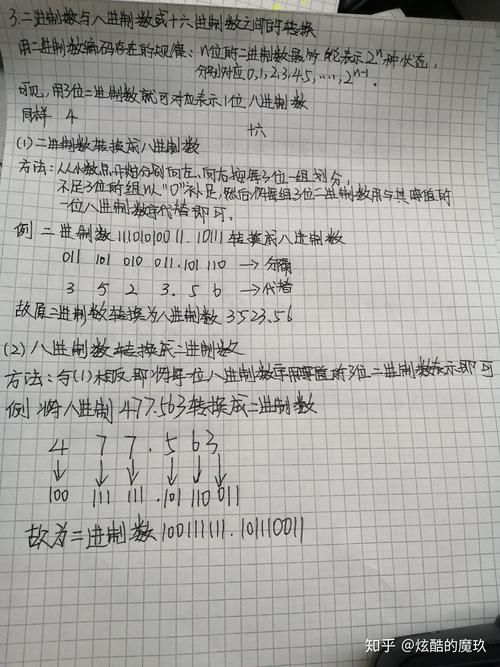 3.二进制数与八进制数或十六进制数之间的转换
用二进制数编码存在的规律：n位的二进制数最多能表示2ⁿ种状态，
分别对应0,1,2,3,4,5,...,2ⁿ⁻¹.
可见，用3位二进制数就可对应表示1位八进制数
同样 4 十六
(1)二进制数转换成八进制数
方法：从小数点开始分别向左、向右按每3位一组划分，
不足3位的组以"0"补足，然后将每组3位二进制数用与其等值的
一位八进制数字代替即可。
例 二进制数11101010011.10111转换成八进制数
011 101 010 011.101 110 →分隔
3 5 2 3.5 6 →代替
故原二进制数转换为八进制数3523.56
(2)八进制数转换成二进制数
方法：与(1)相反，即将每一位八进制数字用等值的3位二进制数表示即可
例 将八进制477.563转换成二进制数
4 7 7.5 6 3
100 111 111.101 110 011
故为二进制数100111111.101110011
知乎 @炫酷的魔玖